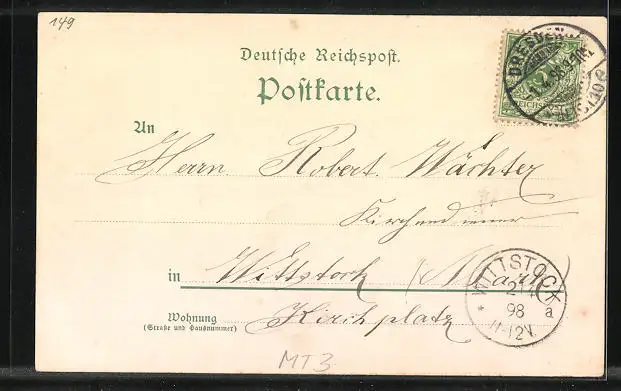 149
Deutsche Reichspost.
Postkarte.
DRESDEN
REICHSPOST
An
Herrn Robert. Wächter
in Wittstock (Mark)
WITTSTOCK
98
a
11-12V.
Wohnung
(Straße und Hausnummer)
Kirchplatz
MT3